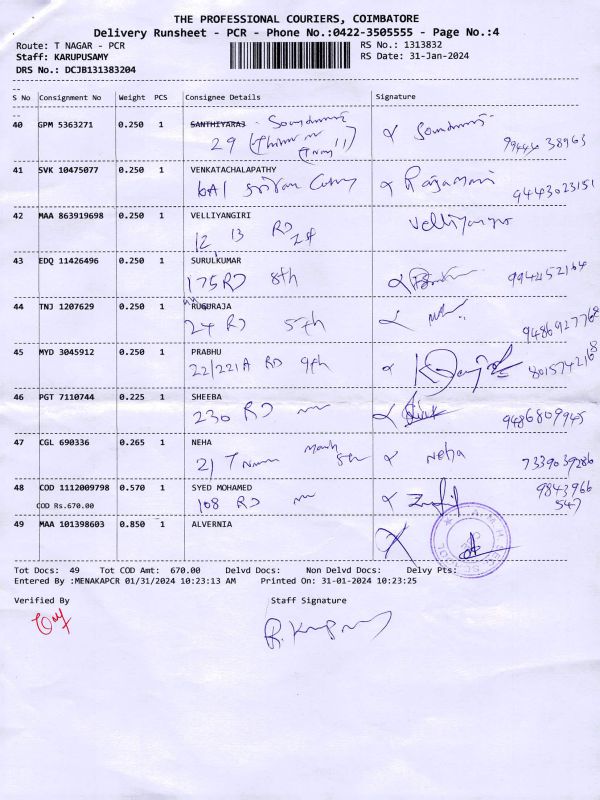 THE PROFESSIONAL COURIERS, COIMBATORE
Delivery Runsheet - PCR - Phone No.:0422-3505555 - Page No.:4
Route: T NAGAR - PCR RS No.: 1313832
Staff: KARUPUSAMY RS Date: 31-Jan-2024
DRS No.: DCJB131383204
S No Consignment No Weight PCS Consignee Details Signature
40 GPM 5363271 0.250 1 SANTHIYARAJ
29
41 SVK 10475077 0.250 1 VENKATACHALAPATHY
Rajamani 9443023151
42 MAA 863919698 0.250 1 VELLIYANGIRI
12 13 RD
43 EDQ 11426496 0.250 1 SURULKUMAR
175 RD 8th
44 TNJ 1207629 0.250 1 RUGURAJA
24 RD 5th 9486927768
45 MYD 3045912 0.250 1 PRABHU
22/221A RD 9th 8015742168
46 PGT 7110744 0.225 1 SHEEBA
230 RD 9486809945
47 CGL 690336 0.265 1 NEHA
21 Neha 7339039286
48 COD 1112009798 0.570 1 SYED MOHAMED
COD Rs.670.00 108 RD 9843966
547
49 MAA 101398603 0.850 1 ALVERNIA
Tot Docs: 49 Tot COD Amt: 670.00 Delvd Docs: Non Delvd Docs: Delvy Pts:
Entered By :MENAKAPCR 01/31/2024 10:23:13 AM Printed On: 31-01-2024 10:23:25
Verified By Staff Signature